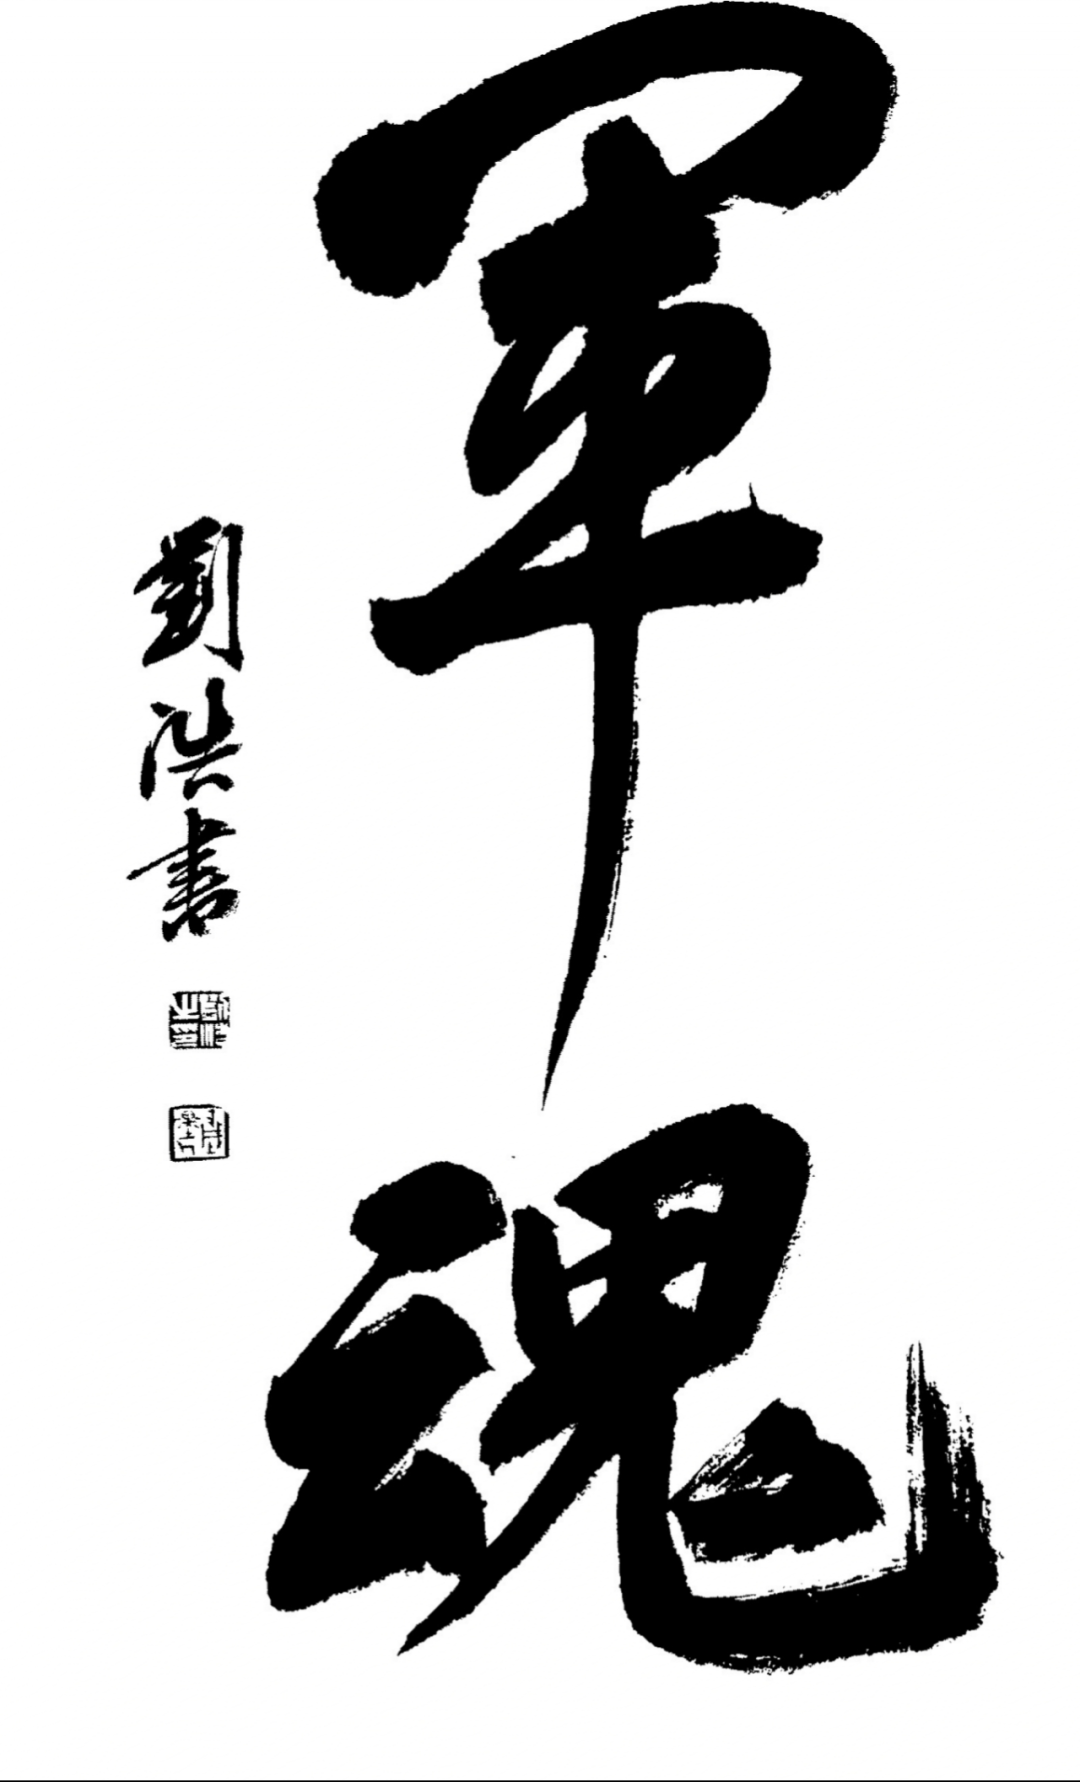 軍魂
劉浩書